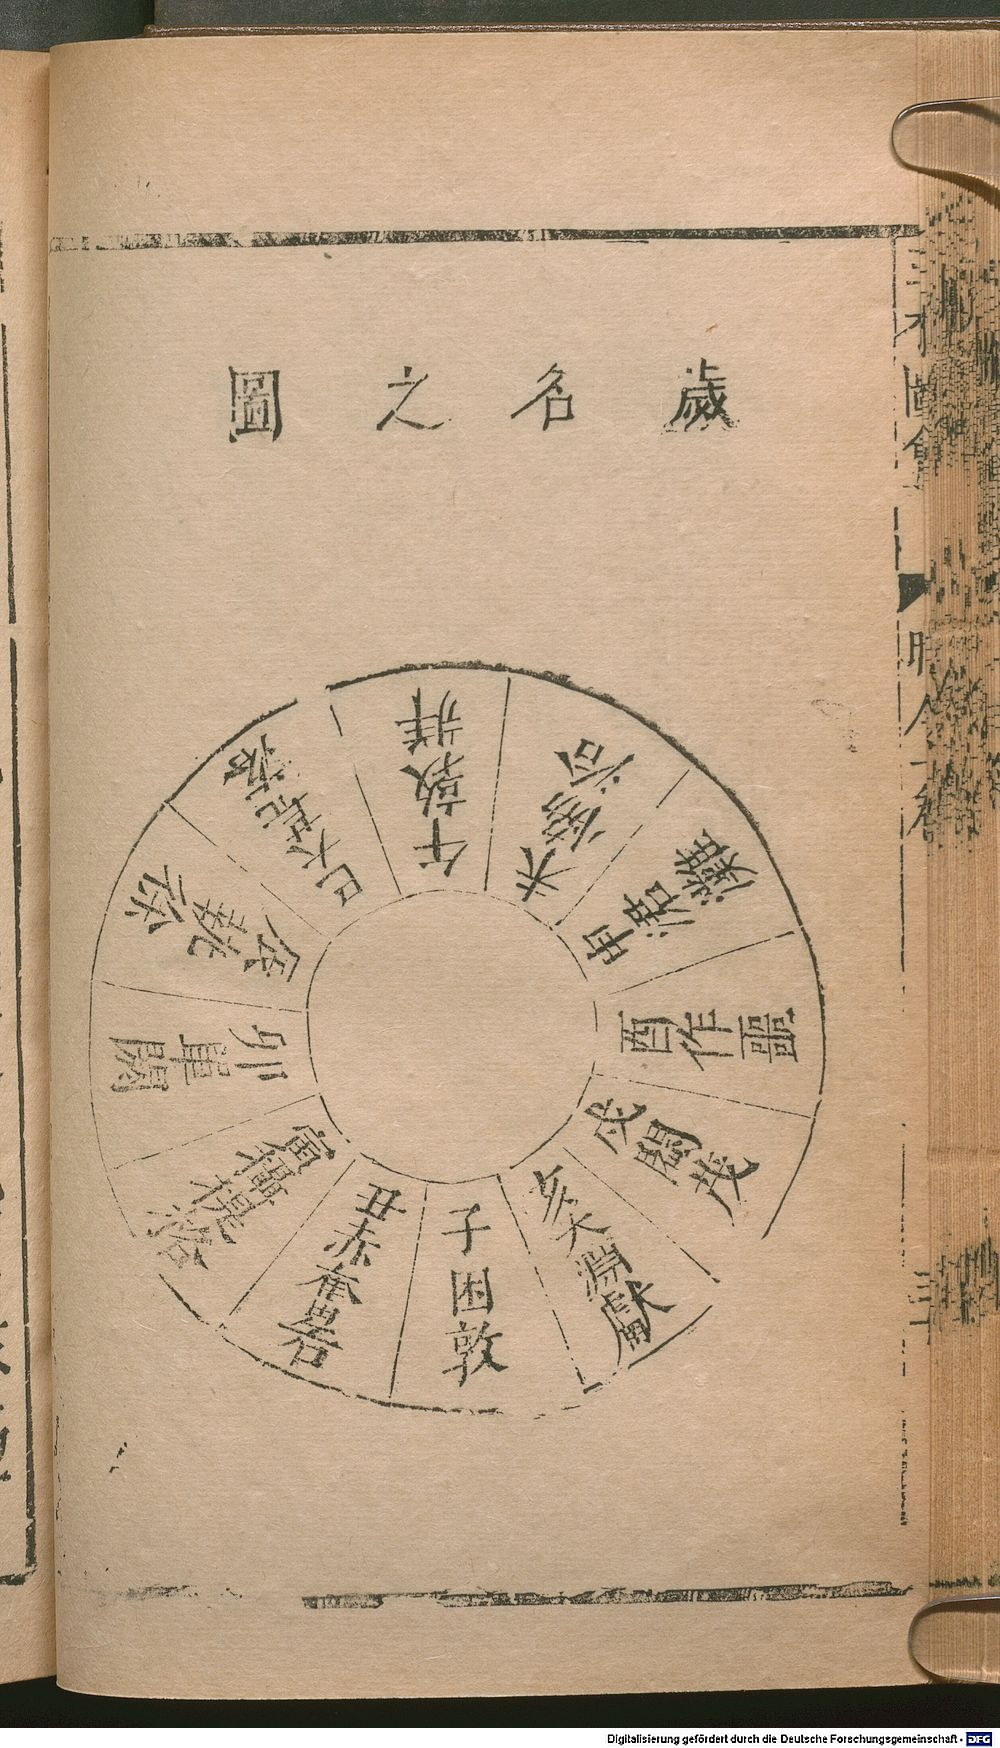 歲名之圖
子困敦
丑赤奮若
寅攝提格
卯單閼
辰執徐
巳大荒落
午敦牂
未協洽
申涒灘
酉作噩
戌閹茂
亥大淵獻
三才圖會
時令一卷
Digitalisierung gefördert durch die Deutsche Forschungsgemeinschaft - DFG